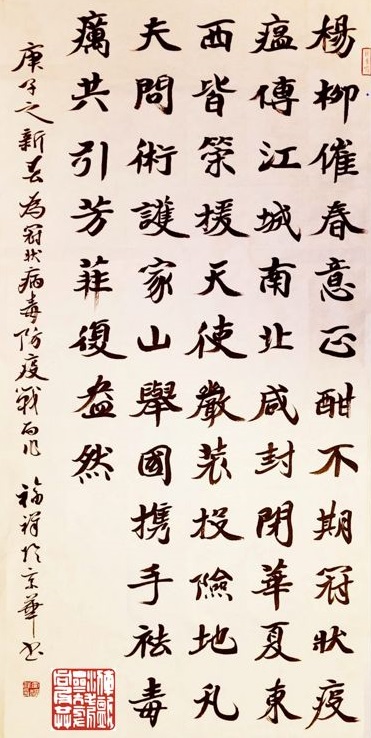 楊柳催春意正酣不期冠狀疫
瘟傳江城南北咸封閉華夏東
西皆策援天使嚴裝投險地凡
夫問術護家山舉國携手祛毒
癘共引芳菲復盎然
庚子之新春為冠狀病毒防疫戰而作 福祥於京華書